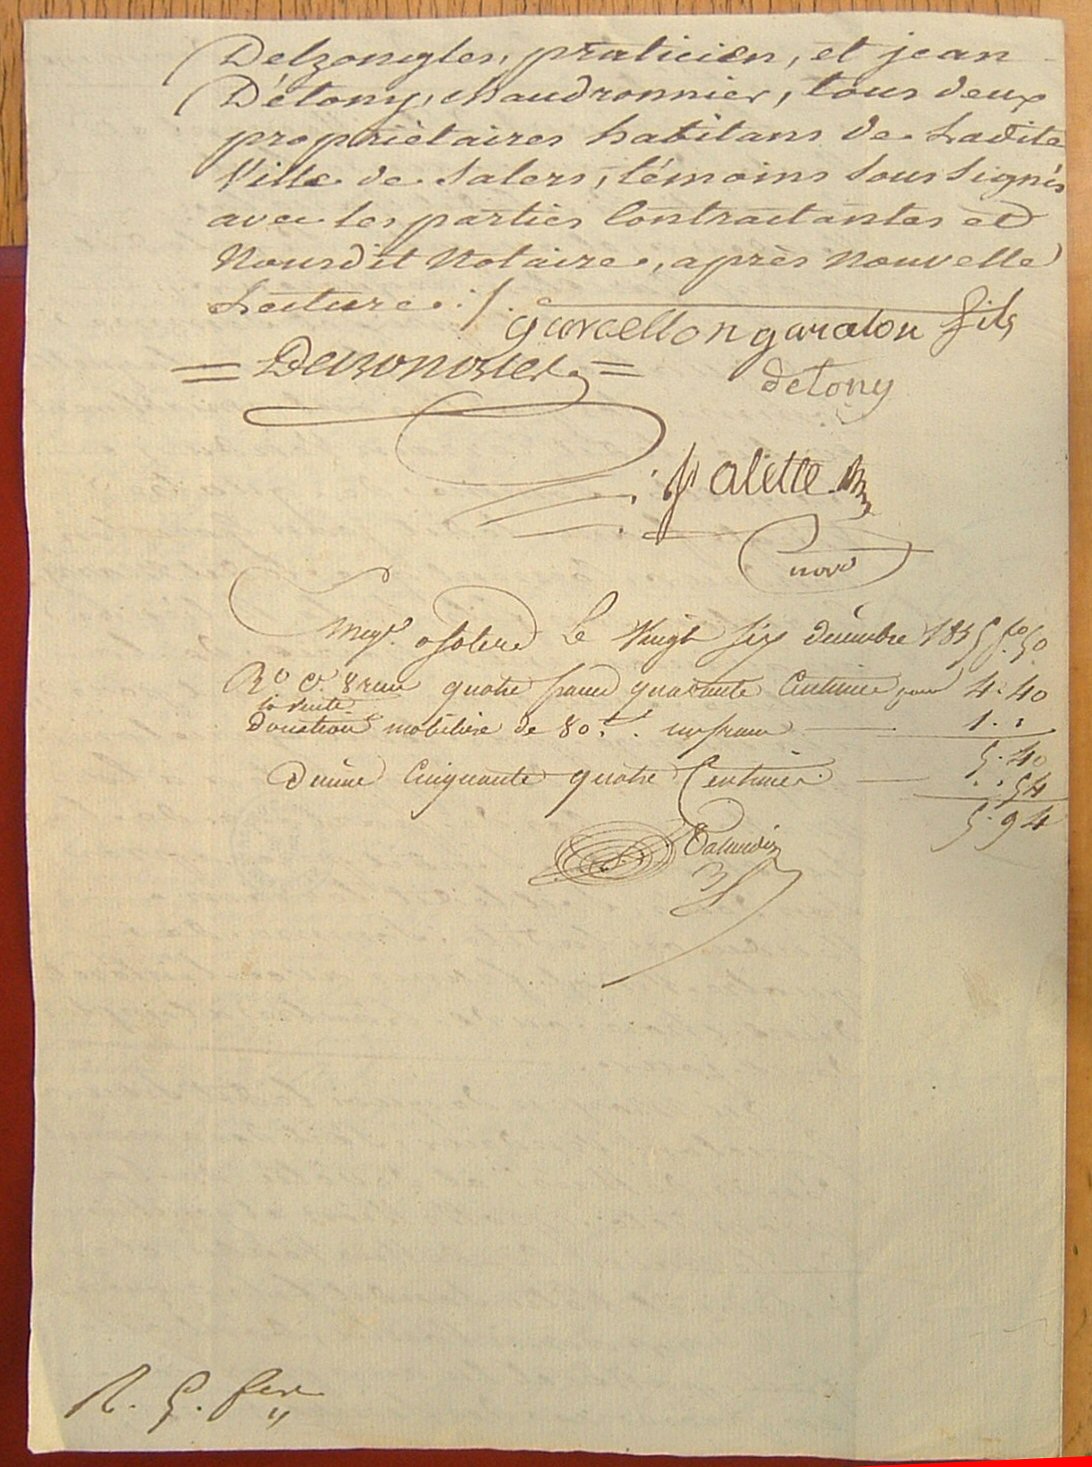 Delzongles, praticien, et jean
Détony, chaudronnier, tous deux
propriètaires habitans de Ladite
Ville de Salers, témoins Sous Signés
avec les parties Contractantes et
Nousdit Notaire, après Nouvelle
Lecture ./.
garcellon garaton fils
= Delzongles =
detony
Valette
Le Vingt Six décembre 1835 fo. 50
Ro C. 8 reçu quatre francs quarante Centimes pour 4. 40
la vente
donation mobilière de 80 f. un franc 1. "
5. 40
Dixième Cinquante quatre Centimes . 54
5. 94
R. 5. fr